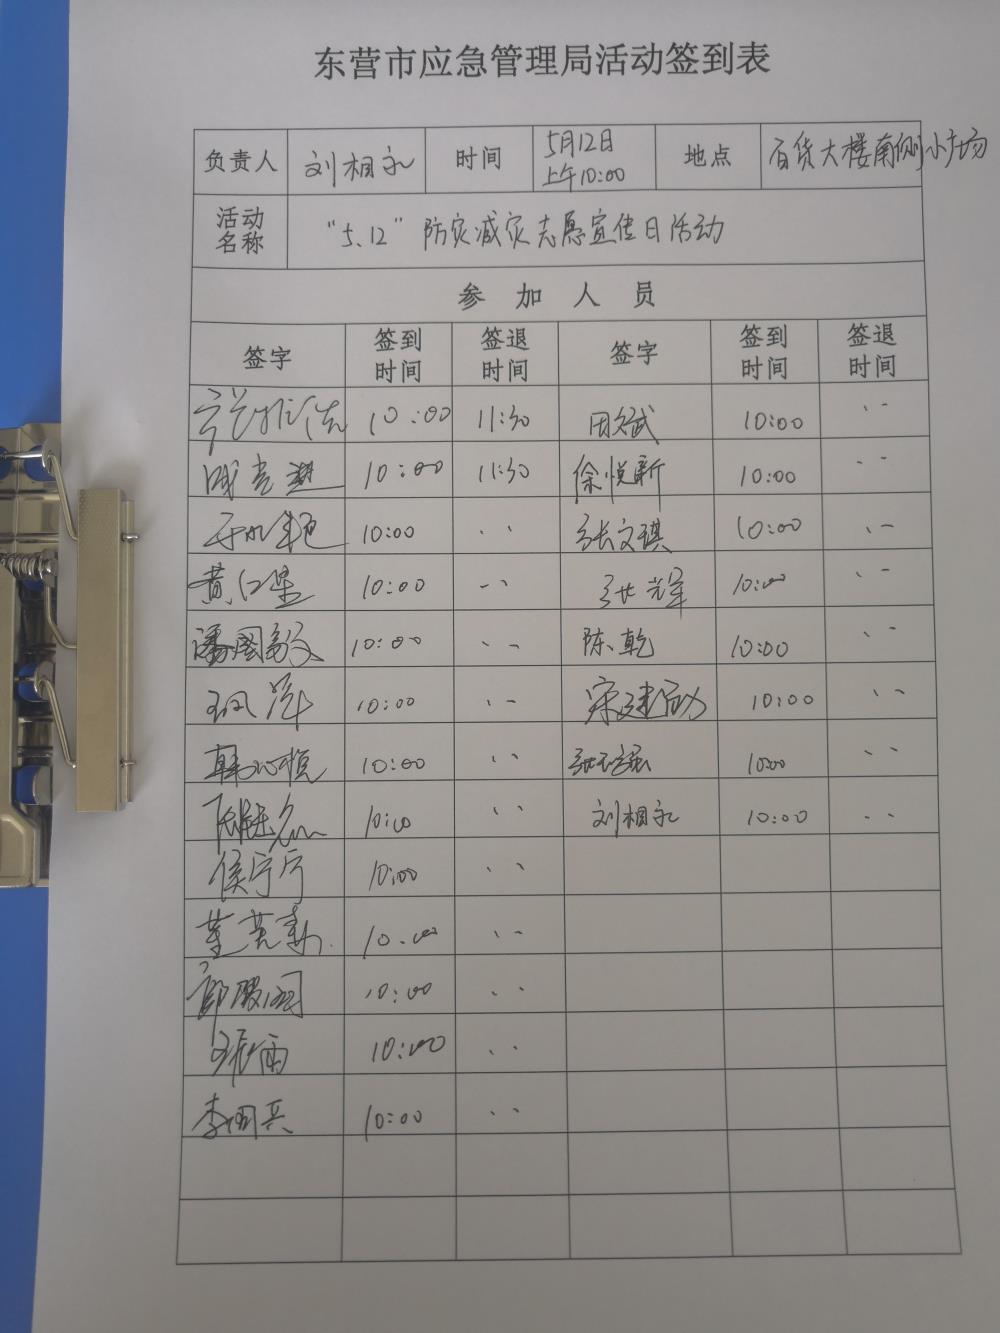 东营市应急管理局活动签到表
负责人 刘相永 时间 5月12日 上午10:00 地点 百货大楼南侧小广场
活动名称 "5.12"防灾减灾志愿宣传日活动
参加人员
签字 签到时间 签退时间 签字 签到时间 签退时间
10:00 11:30 田文斌 10:00 、、
10:00 11:30 徐悦新 10:00 、、
10:00 、、 张文琪 10:00 、、
黄仁星 10:00 、、 10:00 、、
潘国毅 10:00 、、 陈乾 10:00 、、
10:00 、、 宋建功 10:00 、、
10:00 、、 10:00 、、
10:00 、、 刘相永 10:00 、、
侯宁宁 10:00 、、
10:00 、、
10:00 、、
10:00 、、
李国兵 10:00 、、